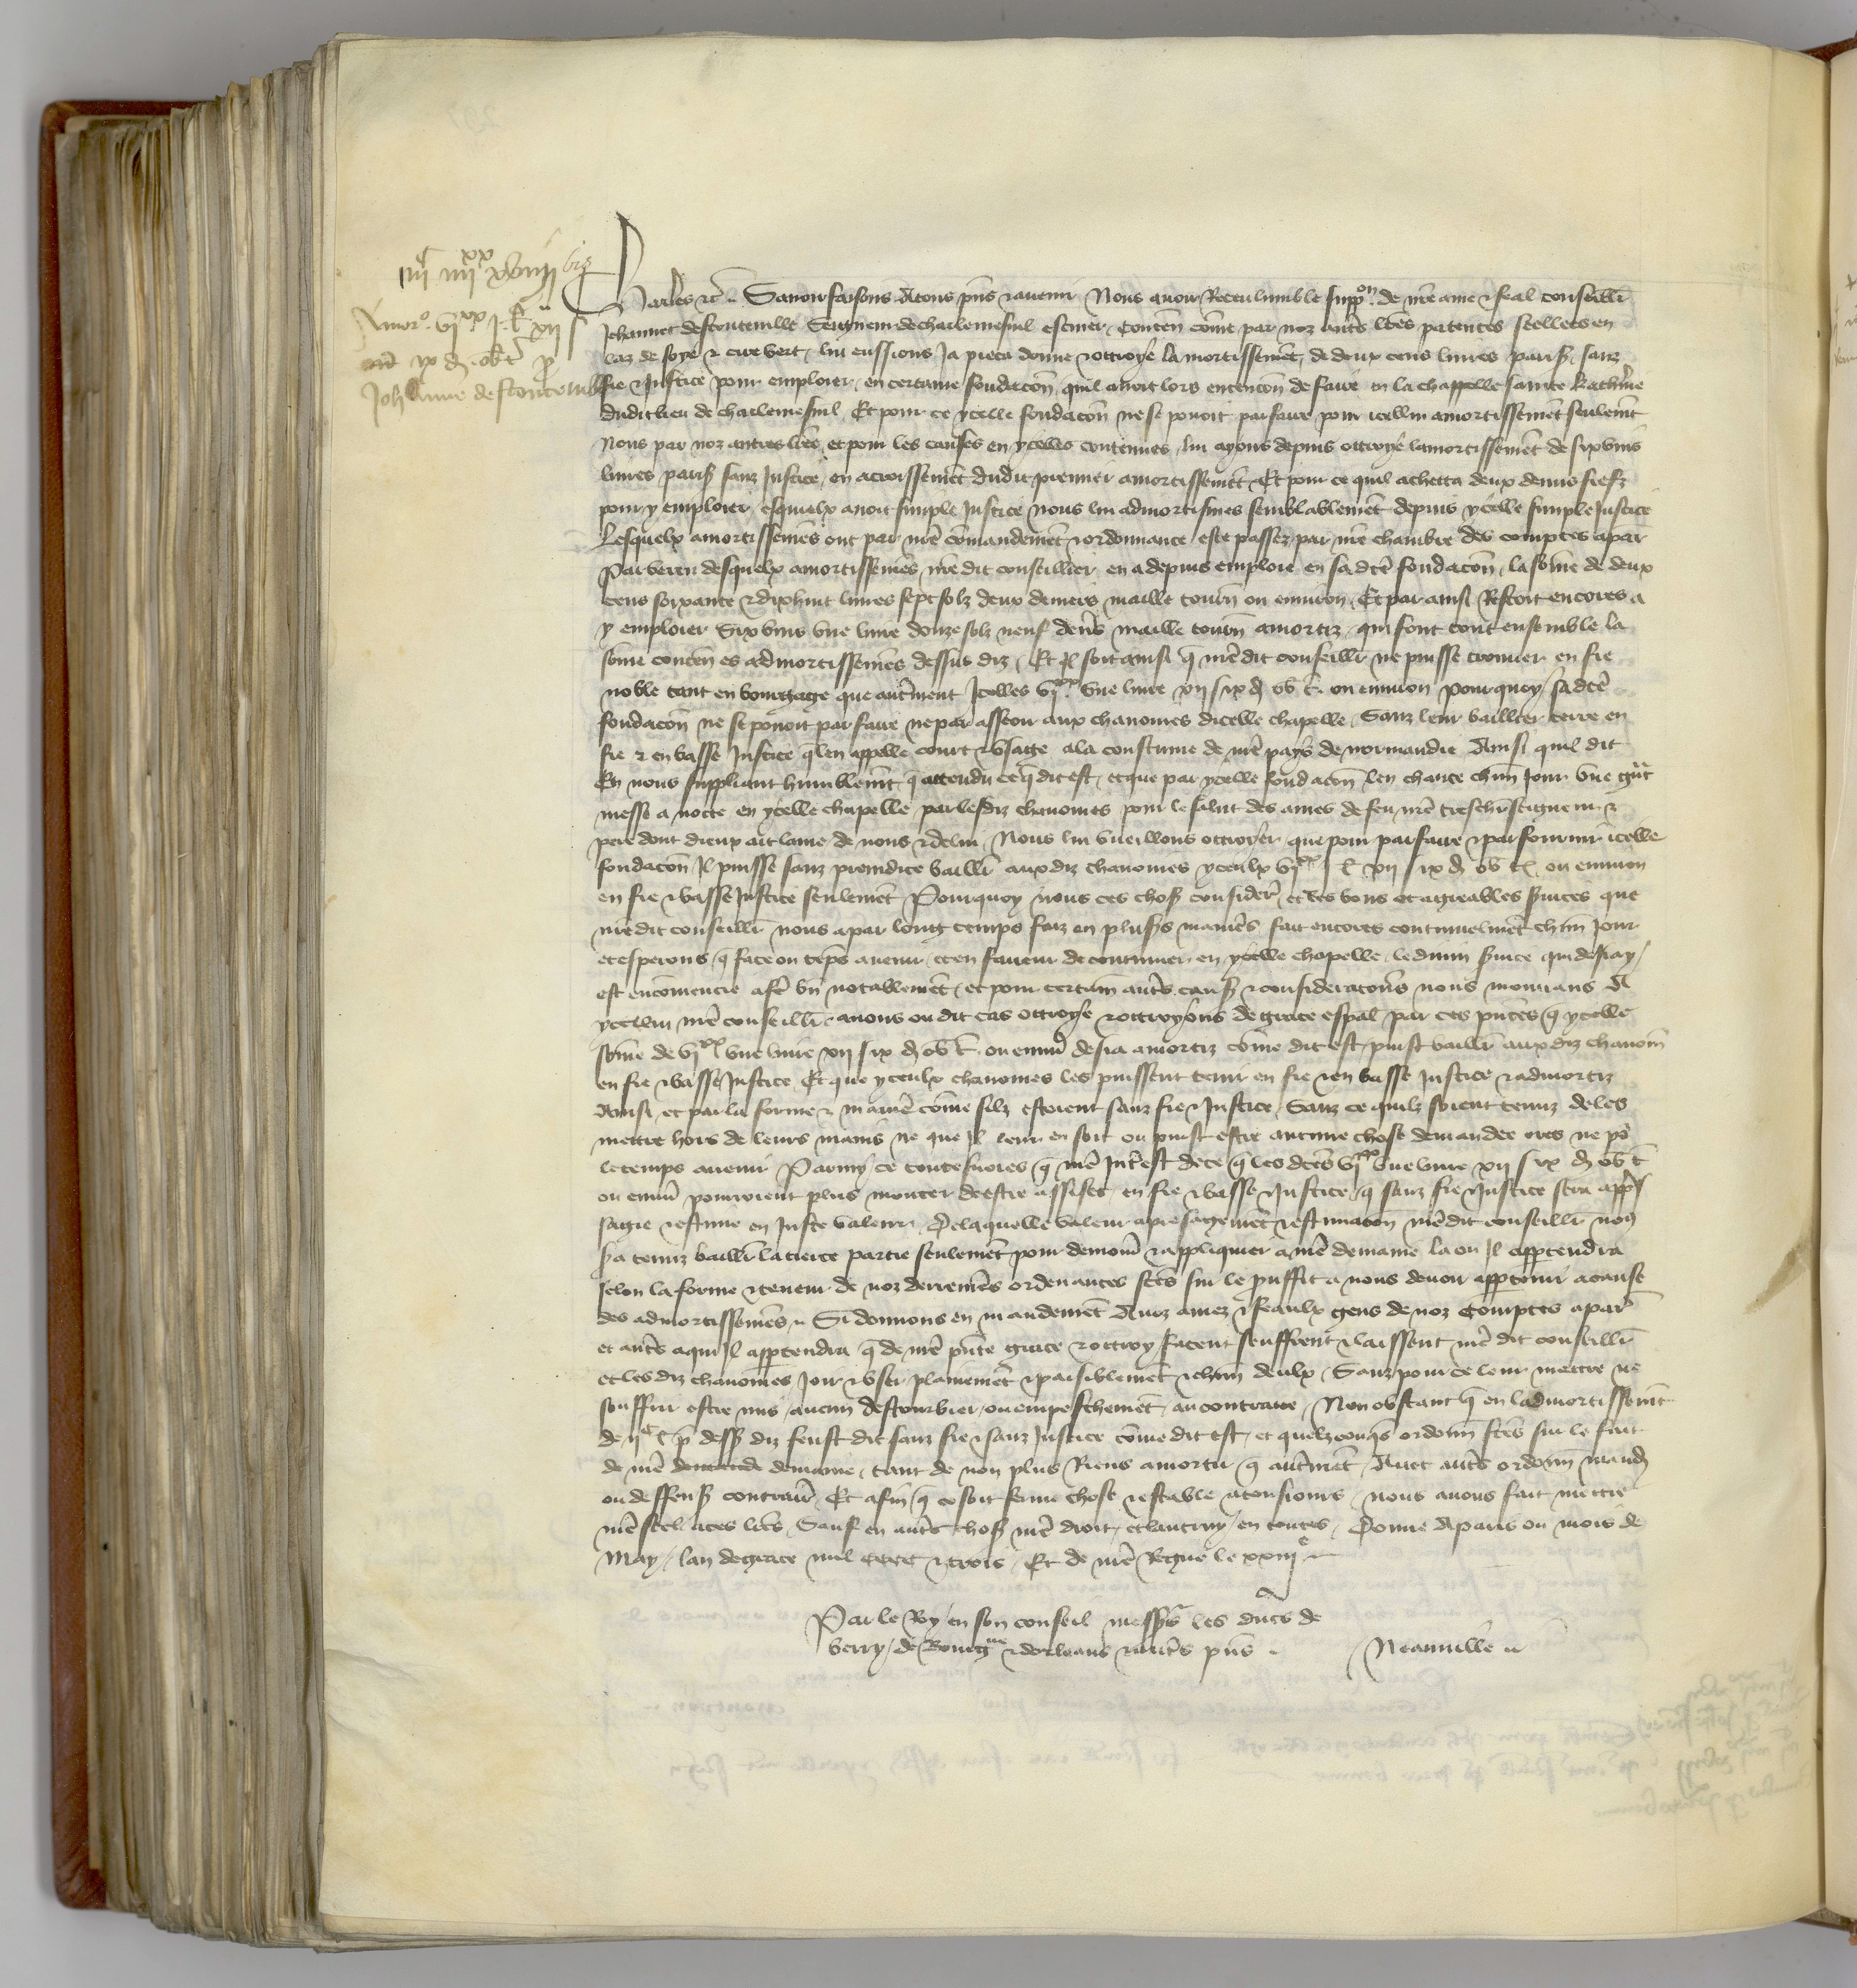 iiiᶜ iiiiˣˣ xviii bis
Amorᵒ. viˣˣ j. l. xii s
ix d. ob. t. p
Johanne destouteville
Charles etc. Savoir faisons Atous pñs & avenir Nous avoir Receu lumble suppᵒⁿ. de nr̃e ame & feal conseillr̃
Jehannet destouteville Seigneur de charlemesnil escuier, Conteñ cõme par noz autr̃s lr̃es patentes seellees en
laz de soye & cire vert, lui eussions Ja pieca donne & ottroye lamortissemẽt de deux cens livres parisˢ, sanz
fie & Justice pour emploier, en certaine fondacõn, quil avoit lors entencõn de faire en la chappelle sainte kathʳine
dudit lieu de charlemesnil, Et pour ce ycelle fondacõn ne se povoit parfaire, pour icellui amortissemẽt seulemẽt
Nous par noz autres lr̃es, et pour les causes en ycelles contenues, lui ayons depuis ottroye lamortissemẽt de six vins
livres parisˢ sanz Justice, en acroissemẽt dudit premier amortissemẽt, Et pour ce quil achetta deux demis fiefz
pour y emploier, esquielx avoit simple Justice nous lui admortismes semblablemẽt depuis ycelle simple Justice
Lesquelx amortissemẽs ont par nr̃e cõmandemẽt & ordonnance este passez par nr̃e chambre des comptes apar̃
Par vertu desquelx amortissemẽs nr̃e dit conseillier en a depuis emploie en sa dcẽ fondacõn, la sõme de deux
cens soixante & dixhuit livres sept solz deux deniers maille tourñ ou environ, Et par ainsi Restoit encores a
y emploier Six vins une livre douze solz neuf den̾s maille tourñ amortiz, qui font tout ensemble la
sõme conteñ es admortissemẽs dessus diz, Et Jl soit ainsi q̃ nr̃e dit conseillr̃ ne puisse trouver en fie
noble tant en bourgage que autr̃ment Jcelles viˣˣ. une livre xii s ix d ob t. ou environ Pourquoy, sa dcẽ
fondacõn ne se povoit parfaire ne par asseoir aux chanoines dicelle chapelle, Sanz leur baillier terre en
fie & en basse Justice q̃ len appelle court & usaige ala coustume de nr̃e pays de normandie Ainsi quil dit
En nous suppliant humblemẽt, q̃ attendu ce q̃ dit est, et que par ycelle fondacõn len chante chũn Jour une gñt
messe a notte en ycelle chapelle par lesdiz chanoines pour le salut des ames de feu nr̃e treschr̃ seigneur &
pere dont dieux ait lame de nous & de lui, Nous lui vueillons ottroyer que pour parfaire & parfournir icelle
fondacõn Jl puisse sanz preiudice baillr̃ auxdiz chanoines yceulx viˣˣ j l. xii s ix d ob t. ou environ
en fie & basse Justice seulemẽt Pourquoy nous ces choſˢ considerˢ, et les bons et agreables s̃vices que
nr̃e dit conseillr̃ nous a par long temps faiz en plusˢ manier̃s fait encores continuelmẽt chũn Jour
et esperons q̃ face ou tẽps avenir, et en faveur de continuer en ycelle chapelle, le divin s̃vice qui desiay,
est encõmencie afr̃ bñ notablemẽt, et pour certain autr̃s causˢ & consideratõns nous mouvans A
ycellui nr̃e conseillr̃ avons ou dit cas ottroye & ottroyons de grace espal par ces pñtes q̃ ycelle
sõme de viˣˣ une livre xii s ix d ob t. ou envir̃ desia amortiz cõme dit est, puist baillr̃ auxdiz chanoiñ
en fie & basse Justice, Et que yceulx chanoines les puissent tenir en fie & en basse Justice & admortiz
Ainsi, et par la forme & manier̃ cõme silz estoient sanz fie & Justice, Sanz ce quilz soient tenuz de les
mettre hors de leurs mains ne que Jl leur en soit ou puist estre aucune chose demandee ores ne pʳ
le temps avenir Parmy ce toutesvoies q̃ nr̃e Jnt̃est de ce q̃ les dcẽs viˣˣ une livre xii s ix d ob t
ou envir̃ pourroient plus monter de estre assises, en fie & basse & Justice, q̃ sanz fie & Justice sera app̃
sagie & estime en Juste valeur, De laquelle valeur apresagemẽt & estimacõn nr̃e dit conseillr̃ no⁹
s̃a tenuz baillr̃ la tierce partie seulemẽt pour demour̃ & appliquer a nr̃e demaine la ou Jl appartendra
selon la forme & teneur de noz derrenier̃s ordenances fc̃es sur le prouffit a nous devoir appartenir a cause
des admortissemẽs, Si donnons en mandemẽt Anoz amez & feaulx gens de noz Comptes apar̃
et autr̃s aqui Jl appartendra q̃ de nr̃e pñte grace & ottroy facent seuffrent & laissent nr̃e dit conseillr̃
et les diz chanoines Joir & user plainemẽt & paisiblemẽt & chũn deulx, Sanz pour ce leur mettre ne
souffrir estre mis, aucun destourbier, ou empeschemẽt, au contraire, Non obstant q̃ en ladmortissemẽt
de iiᶜ l. p̃ dessˢ diz feust dit sanz fie & sanz Justice cõme dit est, et quelzconqˢ ordonñ fc̃es sur le fait
de nr̃e demaine, tant de non plus Riens amortir q̃ autr̃mẽt, Avec autr̃s ordonñ mand̃
ou deffensˢ contrair̃, Et afin q̃ ce soit ferme chose & estable atousiours, nous avons fait mettre
nr̃e seel aces lr̃es, Sauf en autr̃s choſˢ nr̃e droit, et lautruy, en toutes, Donne A paris ou mois de
May, lan de grace mil cccc & trois, Et de nr̃e Regne le xxiiiᵉ
Par le Roy, en son conseil messˢʳˢ les ducs de
berry, de Bourgⁿᵉ & dorleans & autr̃s pñs. Neauville